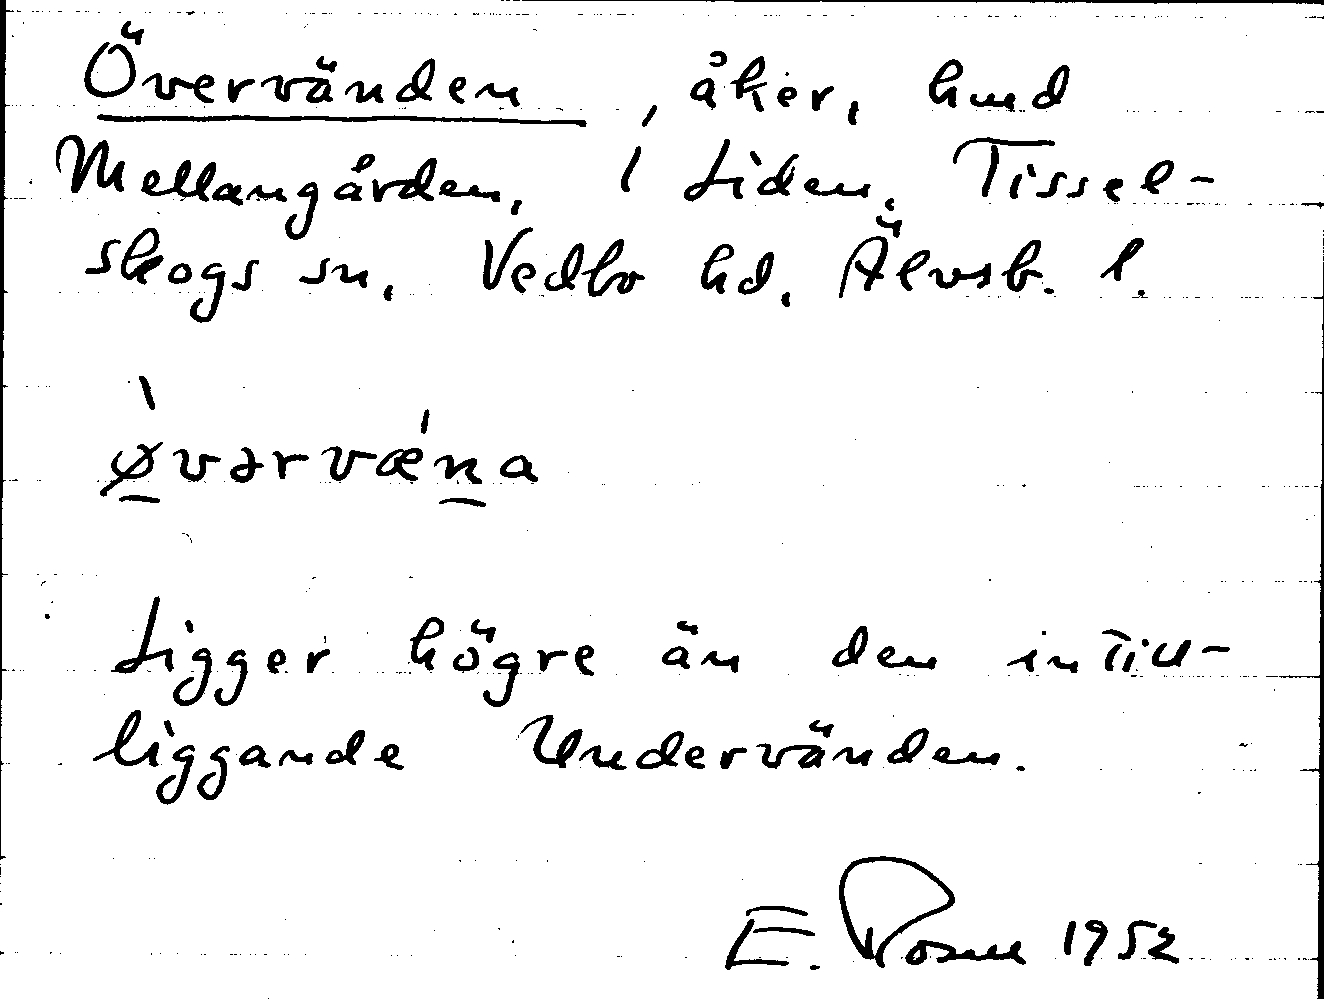 Övervänden, åker, hmd
Mellangården, 1 Liden, Tissel-
skogs sn, Vedbo hd, Älvsb. l.
ø̱̀vərvǽṉa
Ligger högre än den intill-
liggande Undervänden.
E. Rosell 1952